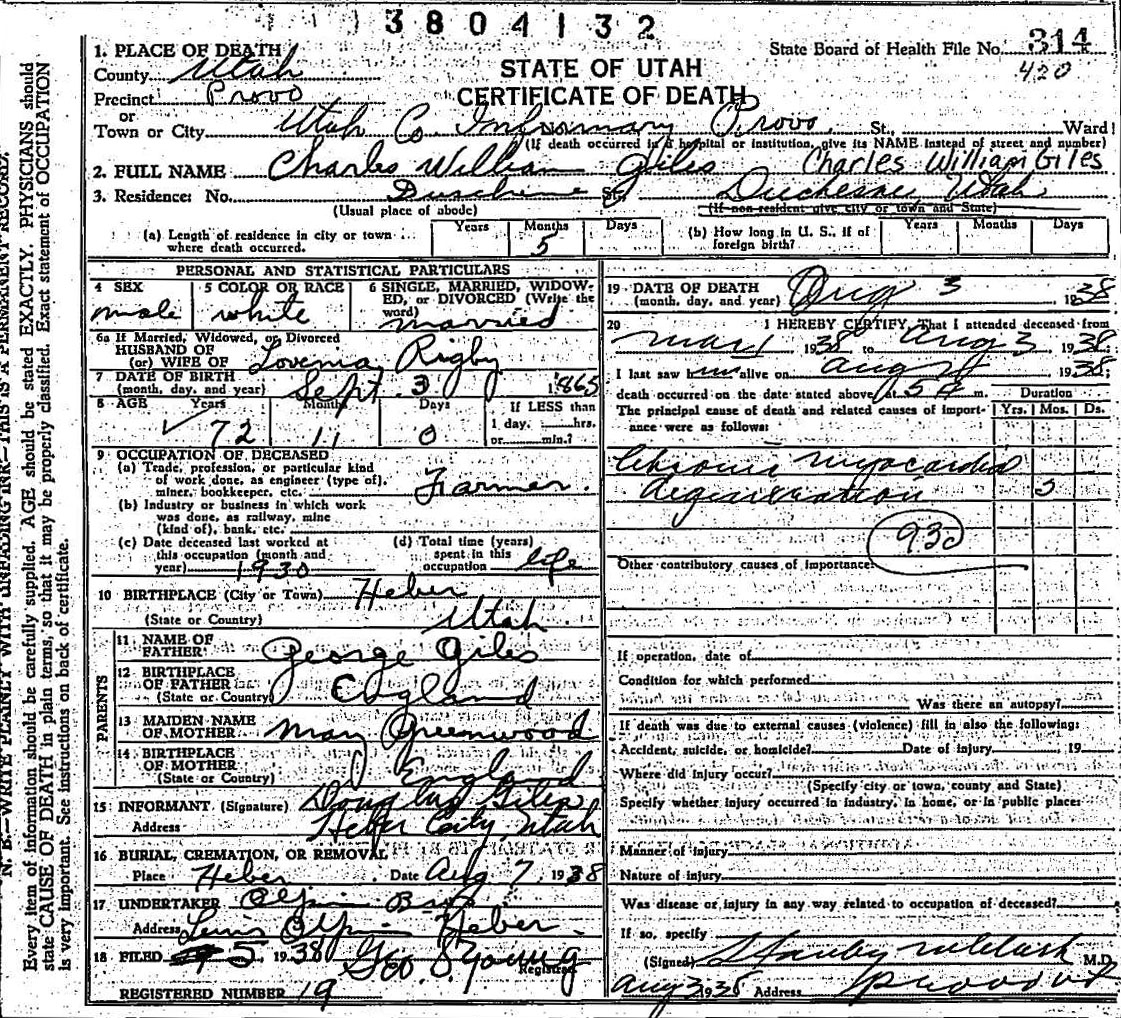 3804132
1. PLACE OF DEATH
State Board of Health File No. 314
County Utah
STATE OF UTAH
420
Precinct Provo
CERTIFICATE OF DEATH
or
Town or City Utah Co Infirmary Provo St., Ward
(If death occurred in a hospital or institution, give its NAME instead of street and number)
2. FULL NAME Charles William Giles Charles William Giles
3. Residence: No. Duschene St. Duchesne, Utah
(Usual place of abode) (If non-resident give city or town and State)
(a) Length of residence in city or town where death occurred. Years Months 5 Days
(b) How long in U. S., if of foreign birth? Years Months Days
PERSONAL AND STATISTICAL PARTICULARS
4 SEX male
5 COLOR OR RACE white
6 SINGLE, MARRIED, WIDOWED, or DIVORCED (Write the word) married
6a If Married, Widowed, or Divorced
HUSBAND OF
(or) WIFE OF Rigby
7 DATE OF BIRTH
(month, day, and year) Sept. 3 1865
8 AGE Years 72 Months 11 Days 0
If LESS than
1 day, hrs.
or min.?
9 OCCUPATION OF DECEASED
(a) Trade, profession, or particular kind
of work done, as engineer (type of),
miner, bookkeeper, etc. Farmer
(b) Industry or business in which work
was done, as railway, mine
(kind of), bank, etc.
(c) Date deceased last worked at
this occupation (month and
year) 1930
(d) Total time (years)
spent in this
occupation life
10 BIRTHPLACE (City or Town) Heber
(State or Country) Utah
PARENTS
11 NAME OF
FATHER George Giles
12 BIRTHPLACE
OF FATHER
(State or Country) England
13 MAIDEN NAME
OF MOTHER Mary Greenwood
14 BIRTHPLACE
OF MOTHER
(State or Country) England
15 INFORMANT (Signature) Douglas Giles
Address Heber City, Utah
16 BURIAL, CREMATION, OR REMOVAL
Place Heber Date Aug 7, 1938
17 UNDERTAKER Olpin Bros
Address Heber
18 FILED 5, 1938 Geo. S Young
Registrar
REGISTERED NUMBER 19
19 DATE OF DEATH
(month, day, and year) Aug 3 1938
20 I HEREBY CERTIFY, That I attended deceased from
Mar 1 1938 to Aug 3 1938
I last saw him alive on Aug 1938;
death occurred on the date stated above, at m.
Duration
The principal cause of death and related causes of importance were as follows: Yrs. Mos. Ds.
Chronic myocardial
degeneration
93
Other contributory causes of importance:
If operation, date of
Condition for which performed
Was there an autopsy?
If death was due to external causes (violence) fill in also the following:
Accident, suicide, or homicide? Date of injury 19
Where did injury occur?
(Specify city or town, county and State)
Specify whether injury occurred in industry, in home, or in public place:
Manner of injury
Nature of injury
Was disease or injury in any way related to occupation of deceased?
If so, specify
(Signed) M.D.
Aug 3 1938 Address Provo Ut
N. B.—WRITE PLAINLY WITH UNFADING INK—THIS IS A PERMANENT RECORD.
Every item of information should be carefully supplied. AGE should be stated EXACTLY. PHYSICIANS should
state CAUSE OF DEATH in plain terms, so that it may be properly classified. Exact statement of OCCUPATION
is very important. See instructions on back of certificate.